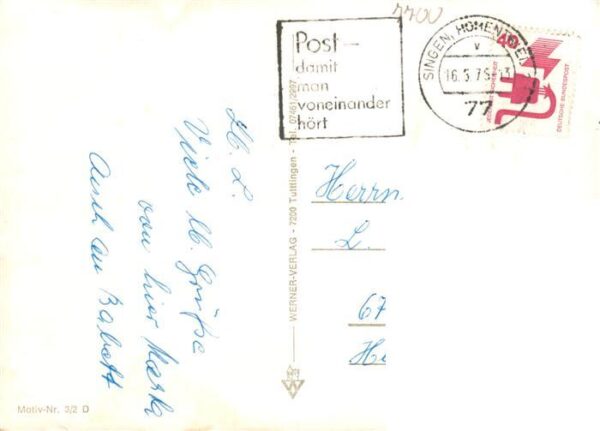 7700
Post–
damit
man
voneinander
hört
SINGEN, HOHENTWIEL
16.5.75-13
v
77
40
DEUTSCHE BUNDESPOST
Lb. L.
Viele lb. Grüße
von hier
Auch an Babett
WERNER-VERLAG - 7200 Tuttlingen - Tel. 07461/2987
Herrn.
L.
67
He
Motiv-Nr. 3/2 D